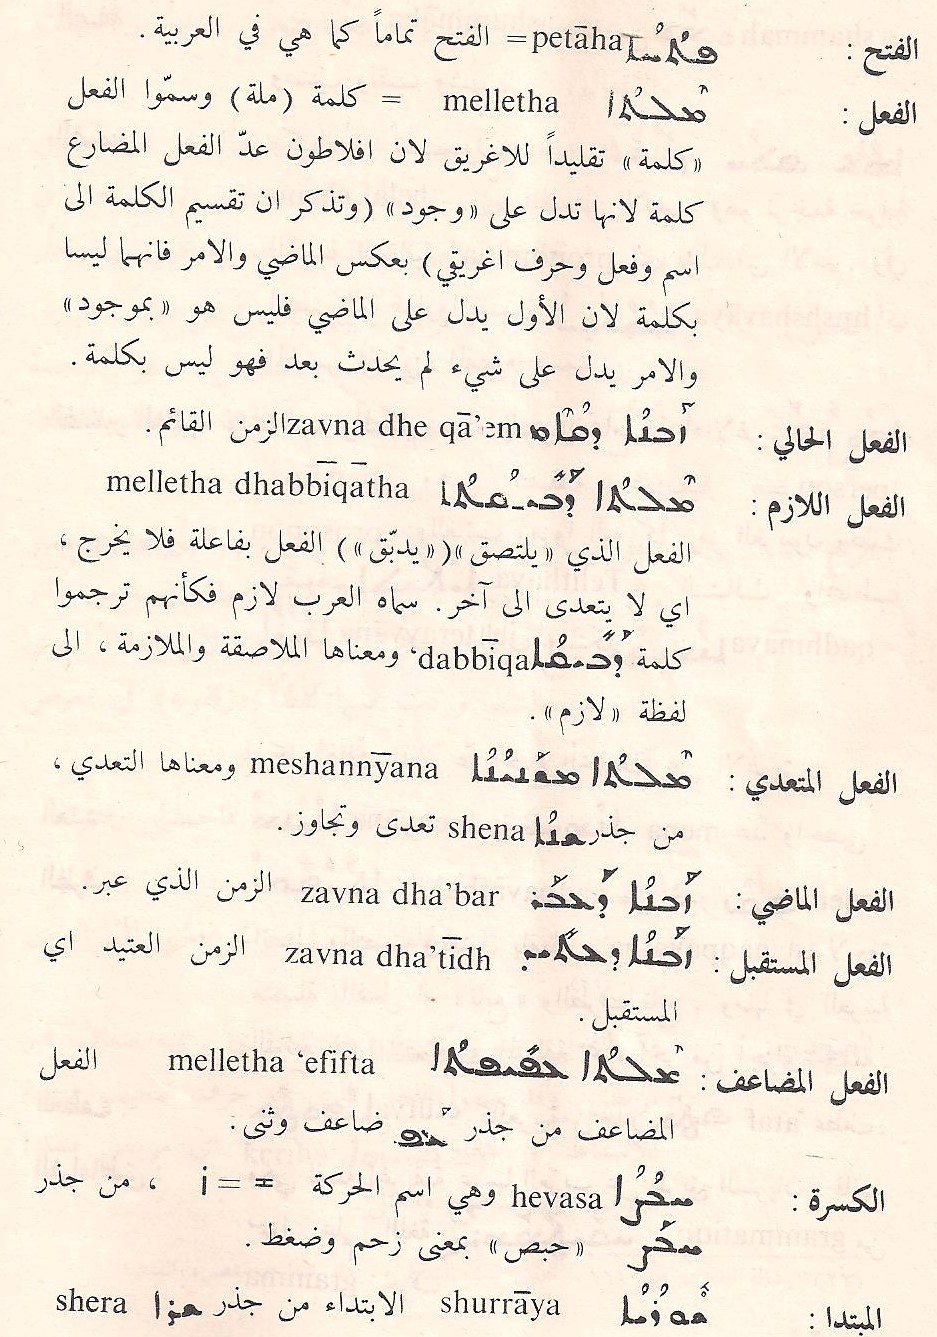 الفتح : ܦܬܳܚܐ petāha = الفتح تماماً كما هي في العربية .
الفعل : ܡܶܠܬܳܐ melletha = كلمة (ملة) وسمّوا الفعل
«كلمة» تقليداً للاغريق لان افلاطون عدّ الفعل المضارع
كلمة لانها تدل على «وجود» (وتذكر ان تقسيم الكلمة الى
اسم وفعل وحرف اغريقي) بعكس الماضي والامر فانهما ليسا
بكلمة لان الأول يدل على الماضي فليس هو «بموجود»
والامر يدل على شيء لم يحدث بعد فهو ليس بكلمة .
الفعل الحالي : ܙܰܒܢܳܐ ܕܩܳܐܶܡ zavna dhe qā’em الزمن القائم .
الفعل اللازم : ܡܶܠܬܳܐ ܕܰܒܺܝܩܳܬܳܐ melletha dhabbīqātha
الفعل الذي «يلتصق» («يدبّق») الفعل بفاعلة فلا يخرج ،
اي لا يتعدى الى آخر . سماه العرب لازم فكأنهم ترجموا
كلمة ܕܰܒܺܝܩܳܐ dabbīqa‘ ومعناها الملاصقة والملازمة ، الى
لفظة «لازم» .
الفعل المتعدي : ܡܶܠܬܳܐ ܡܫܰܢܝܳܢܳܐ meshannȳana ومعناها التعدي ،
من جذر ܫܢܳܐ shena تعدى وتجاوز .
الفعل الماضي : ܙܰܒܢܳܐ ܕܰܥܒܰܪ zavna dha’bar الزمن الذي عبر .
الفعل المستقبل : ܙܰܒܢܳܐ ܕܥܬܺܝܕ zavna dha’tīdh الزمن العتيد اي
المستقبل .
الفعل المضاعف : ܡܶܠܬܳܐ ܥܦܺܝܦܬܳܐ melletha ‘efifta الفعل
المضاعف من جذر ܥܦ ضاعف وثنى .
الكسرة : ܚܒܳܨܳܐ hevasa وهي اسم الحركة = i ، من جذر
ܚܒܰܨ «حبص» بمعنى زحم وضغط .
المبتدا : ܫܘܪܳܝܳܐ shurrāya الابتداء من جذر ܫܪܐ shera